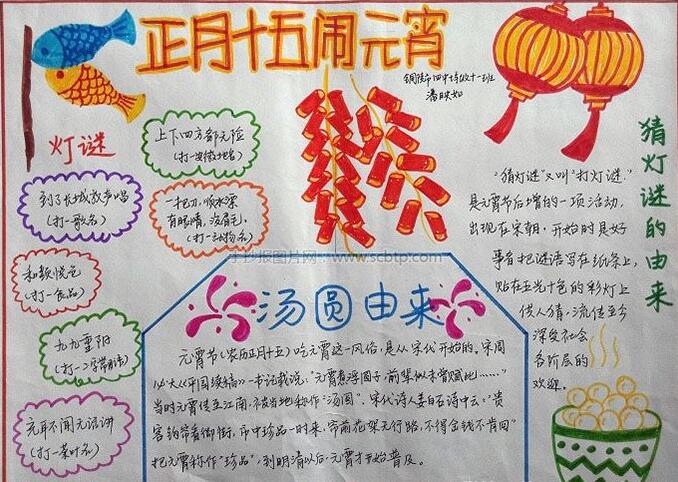 正月十五闹元宵
灯谜
上下四方都无险
(打一安徽地名)
到了长城放声唱
(打一歌名)
一把刀,顺水漂
有眼睛,没眉毛,
(打一动物名)
和颜悦色
(打一食品)
九九重阳
(打一二字常用语)
充耳不闻无话讲
(打一菜叶名)
手抄报图片网:www.scbtp.com
汤圆由来
元宵节(农历正月十五)吃元宵这一风俗,是从宋代开始的,宋周
必大《平园续稿》一书记载说:"元宵煮浮圆子,前辈似未曾赋此……"
当时元宵传至江南,被当地称作"汤圆"。宋代诗人姜白石诗中云:"贵
客钩帘看御街,市中珍品一时来,帘前花架无行路,不得金钱不肯回"
把元宵称作"珍品",到明清以后,元宵才开始普及。
猜灯谜的由来
"猜灯谜"又叫"打灯谜"
是元宵节后增的一项活动,
出现在宋朝。开始时是好
事者把谜语写在纸条上,
贴在五光十色的彩灯上
供人猜,流传至今
深受社会
各阶层的
欢迎。